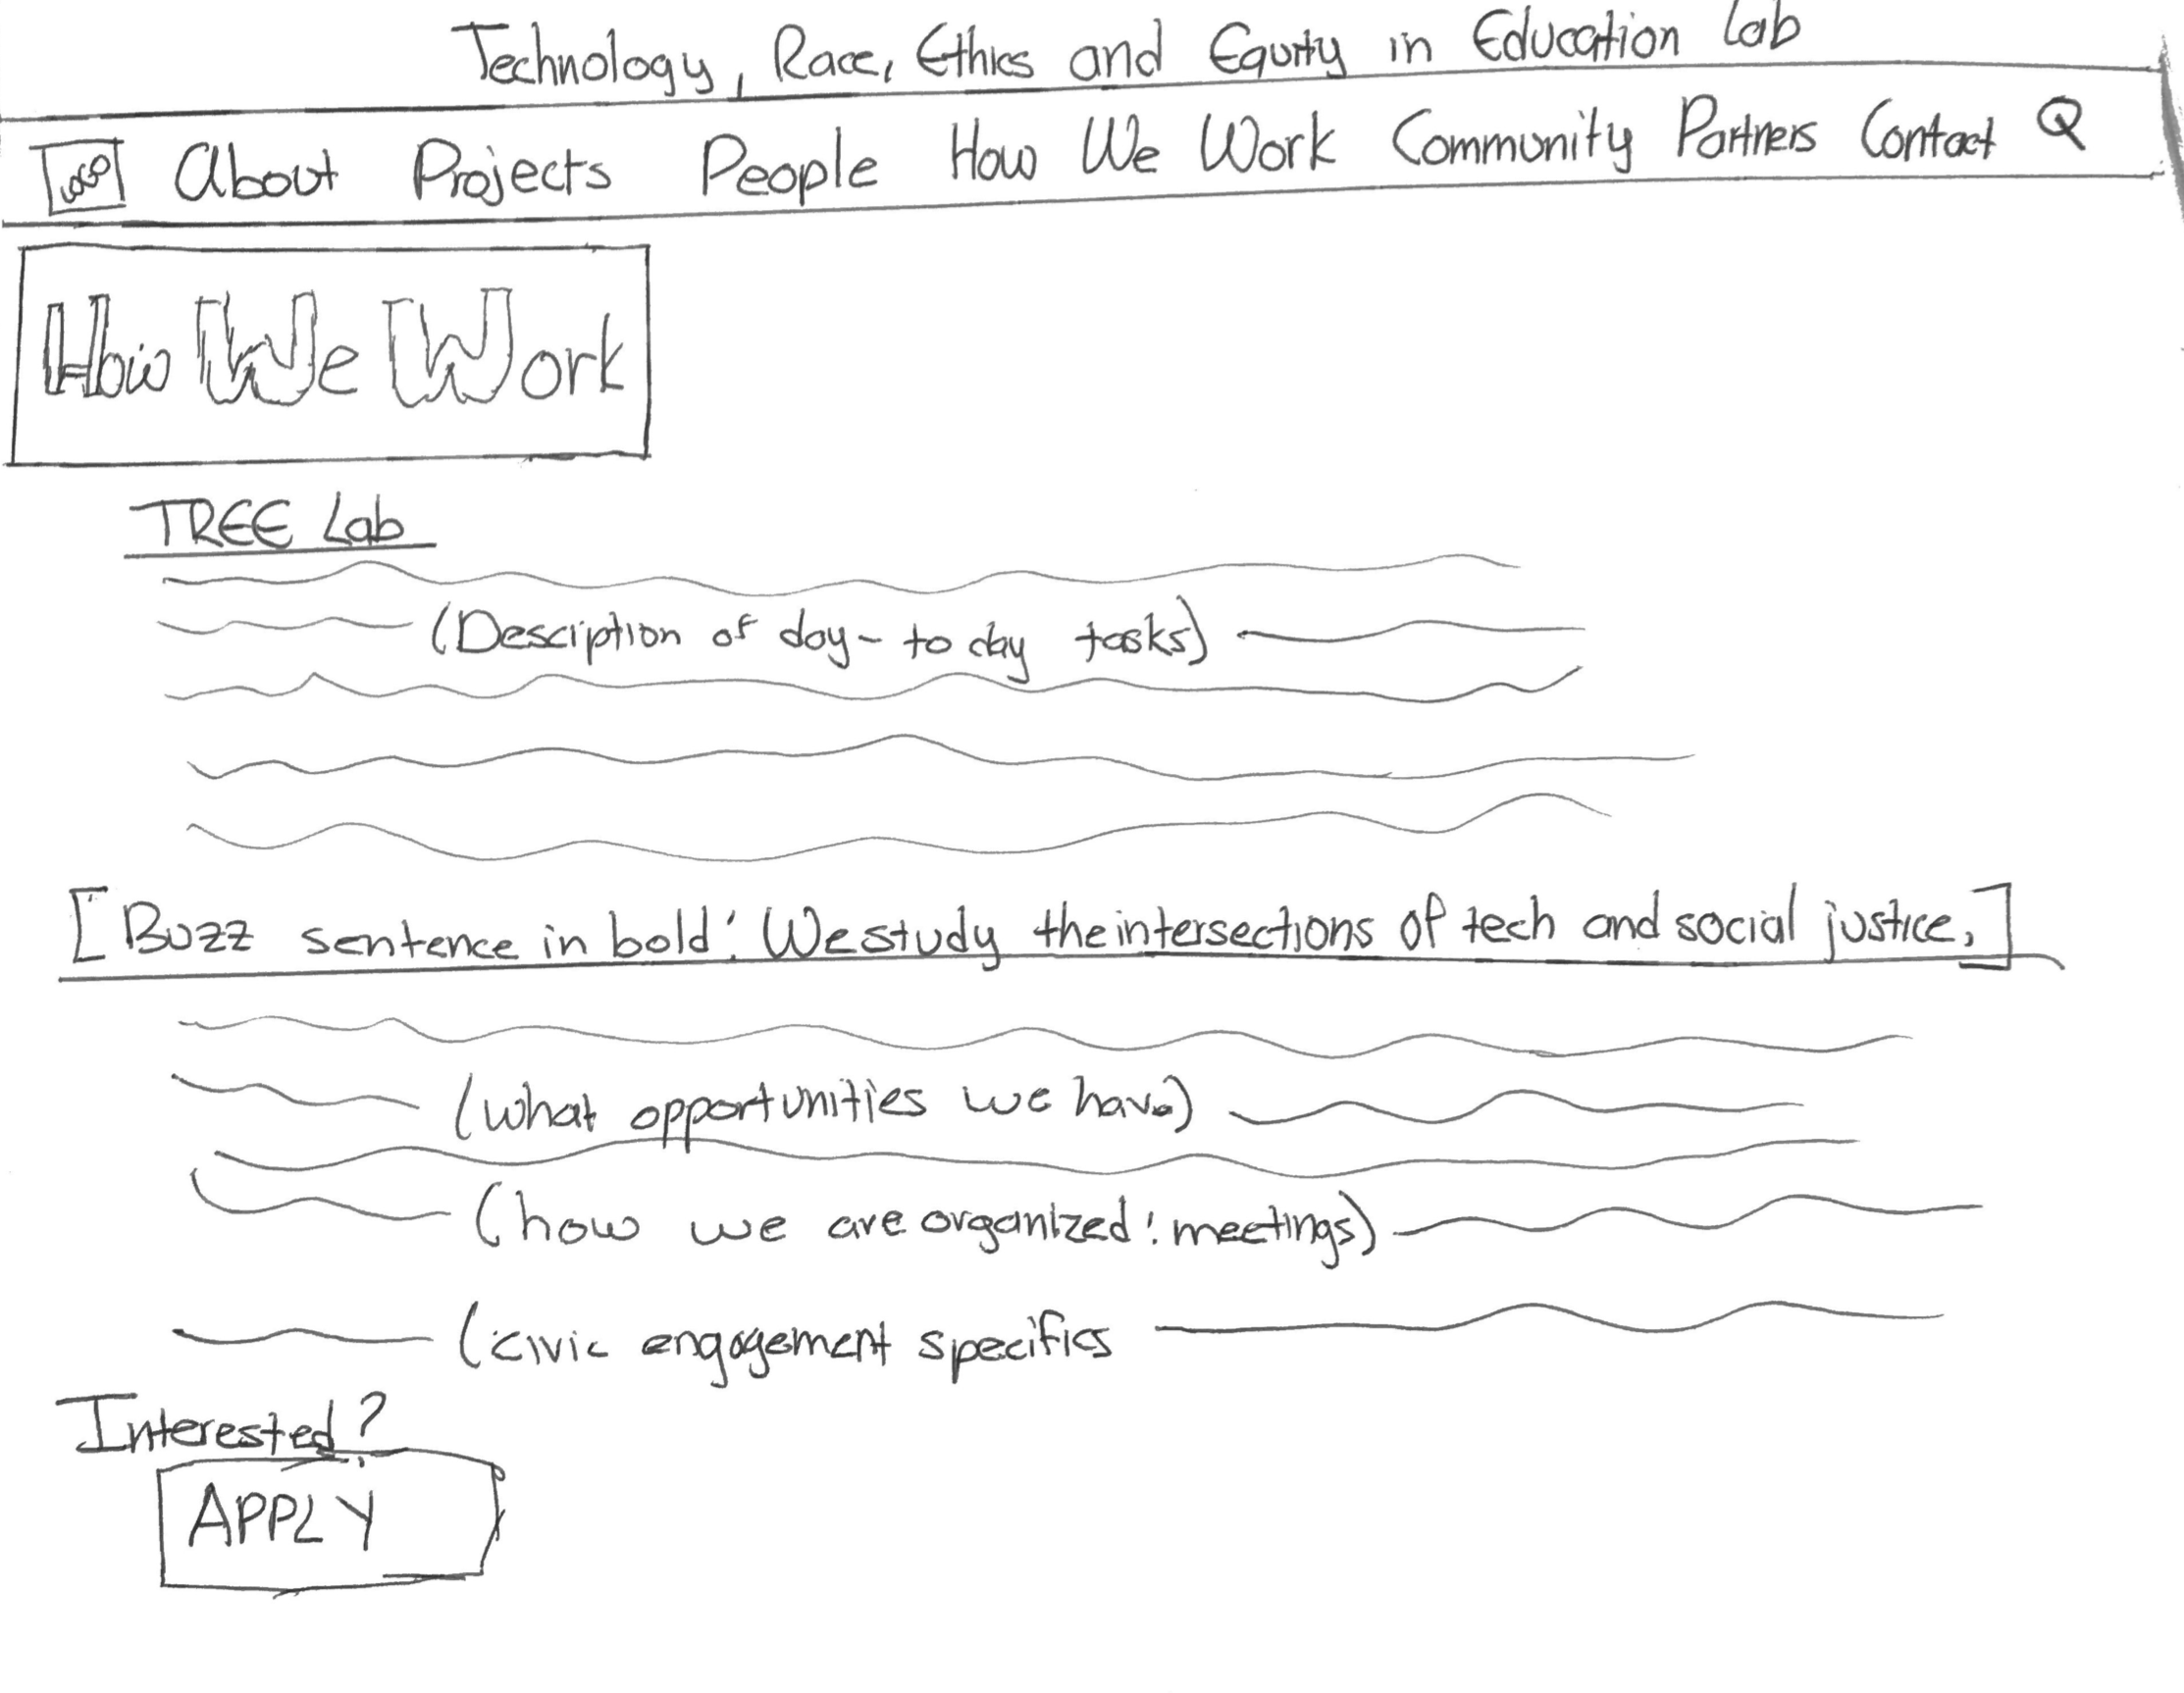 Technology, Race, Ethics and Equity in Education Lab
LOGO About Projects People How We Work Community Partners Contact Q
How We Work
TREE Lab
(Description of day-to day tasks)
[Buzz sentence in bold: We study the intersections of tech and social justice,]
(what opportunities we have)
(how we are organized: meetings)
(civic engagement specifics
Interested?
APPLY